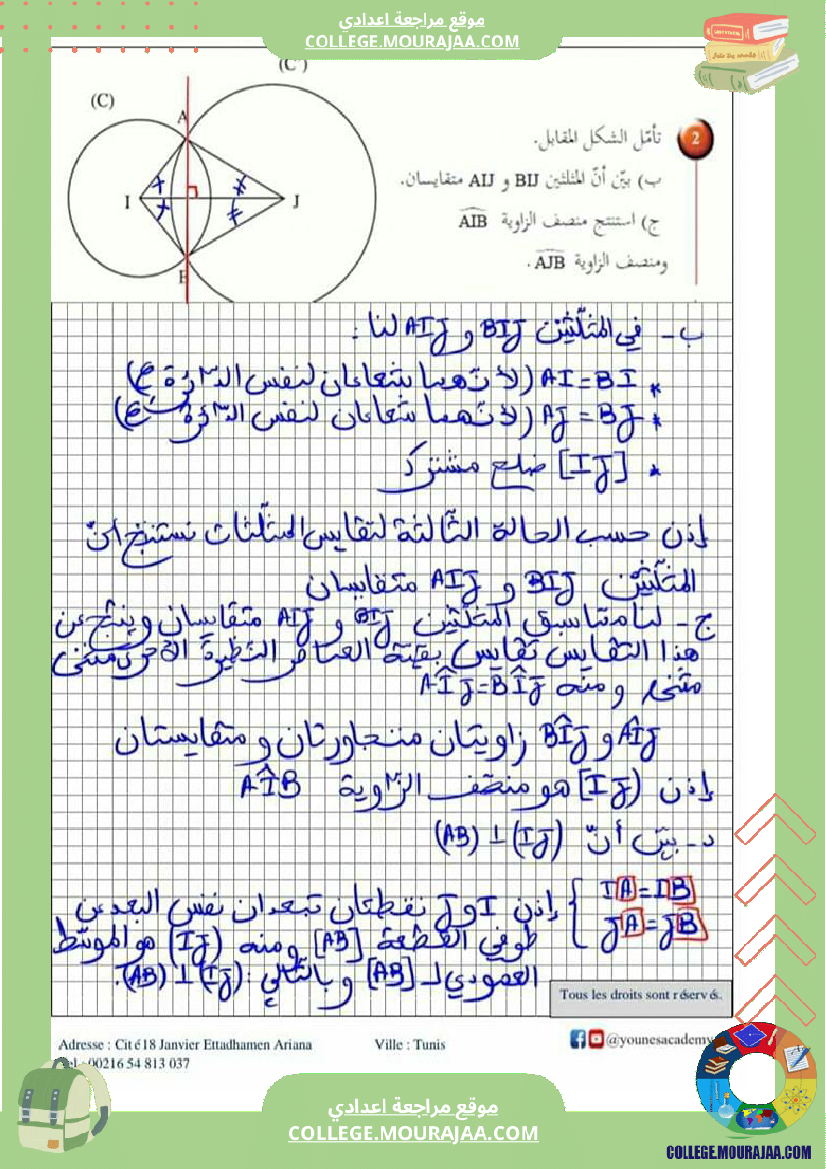 موقع مراجعة اعدادي
COLLEGE.MOURAJAA.COM
(C')
(C)
A
I
J
B
2
تأمّل الشكل المقابل.
ب) بيّن أنّ المثلثين BIJ و AIJ متقايسان.
ج) استنتج منصف الزاوية AIB
ومنصف الزاوية AJB.
ب - في المثلّثين BIJ و AIJ لنا :
* AI = BI (لأنّهما شعاعان لنفس الدّائرة
* AJ = BJ (لأنّهما شعاعان لنفس الدّائرة
* [IJ] ضلع مشترك
إذن حسب الحالة الثّالثة لتقايس المثلّثات نستنتج أنّ
المثلّثين BIJ و AIJ متقايسان
ج - لنا ممّا سبق المثلّثين BIJ و AIJ متقايسان وينتج عن
هذا التقايس تقايس بقيّة العناصر النظيرة الأخرى مثنى
مثنى ومنه AÎJ=BÎJ
AÎJ و BÎJ زاويتان متجاورتان و متقايستان
إذن [IJ) هو منصّف الزّاوية AÎB
د - بيّن أنّ (AB) ⊥ (IJ)
IA = IB
JA = JB
إذن I و J نقطتان تبعدان نفس البعد عن
طرفي القطعة [AB] ومنه (IJ) هو الموسّط
العمودي لـ [AB] وبالتّالي : (AB) ⊥ (IJ).
Tous les droits sont réservés.
Adresse : Cité18 Janvier Ettadhamen Ariana
Ville : Tunis
@younesacademy
Tel : 00216 54 813 037
موقع مراجعة اعدادي
COLLEGE.MOURAJAA.COM
COLLEGE.MOURAJAA.COM